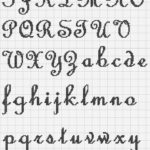 PQRSTUV
WXYZabcde
fghijklmno
pqrstuvwxy